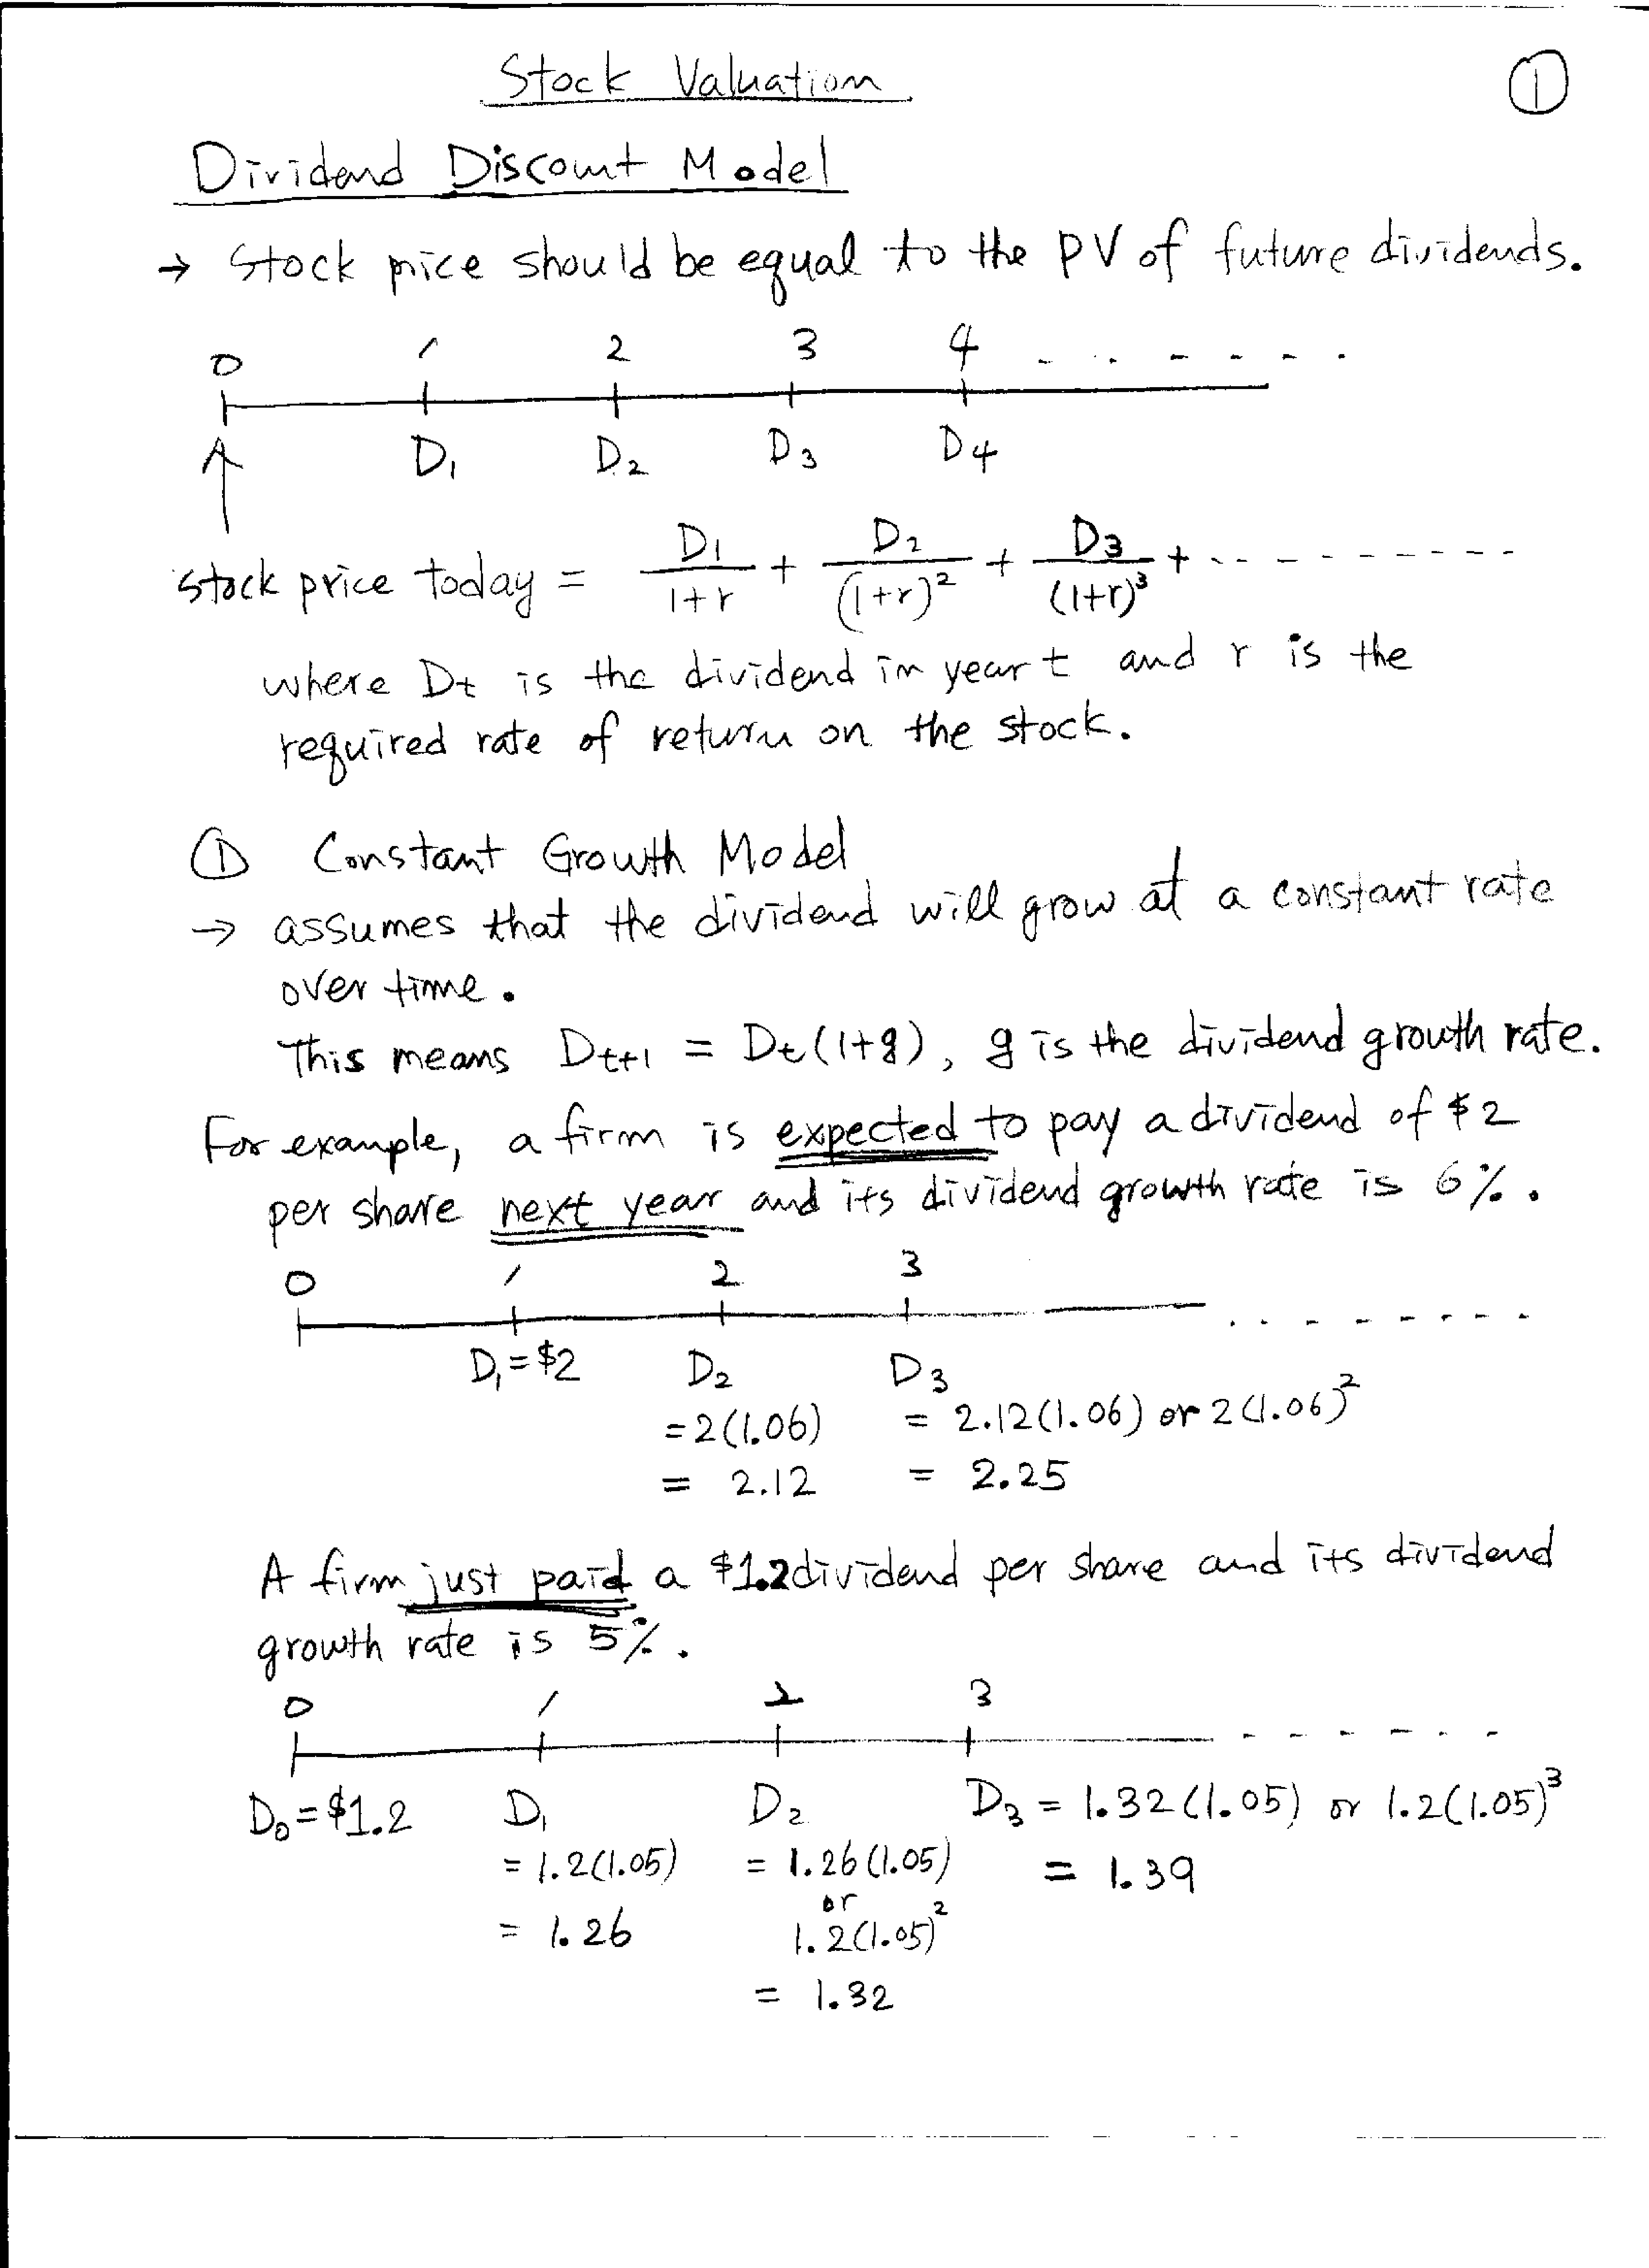 Stock Valuation
①
Dividend Discount Model
→ Stock price should be equal to the PV of future dividends.
0 1 2 3 4 - - - - - - -
D₁ D₂ D₃ D₄
Stock price today = D₁/(1+r) + D₂/(1+r)² + D₃/(1+r)³ + - - - - - - - - -
where Dt is the dividend in year t and r is the
required rate of return on the stock.
① Constant Growth Model
→ assumes that the dividend will grow at a constant rate
over time.
This means Dt+1 = Dt(1+g), g is the dividend growth rate.
For example, a firm is expected to pay a dividend of $2
per share next year and its dividend growth rate is 6%.
0 1 2 3 - - - - - - - -
D₁=$2 D₂ D₃
=2(1.06) = 2.12(1.06) or 2(1.06)²
= 2.12 = 2.25
A firm just paid a $1.2 dividend per share and its dividend
growth rate is 5%.
0 1 2 3 - - - - - -
D₀=$1.2 D₁ D₂ D₃ = 1.32(1.05) or 1.2(1.05)³
= 1.2(1.05) = 1.26(1.05) = 1.39
or
= 1.26 1.2(1.05)²
= 1.32